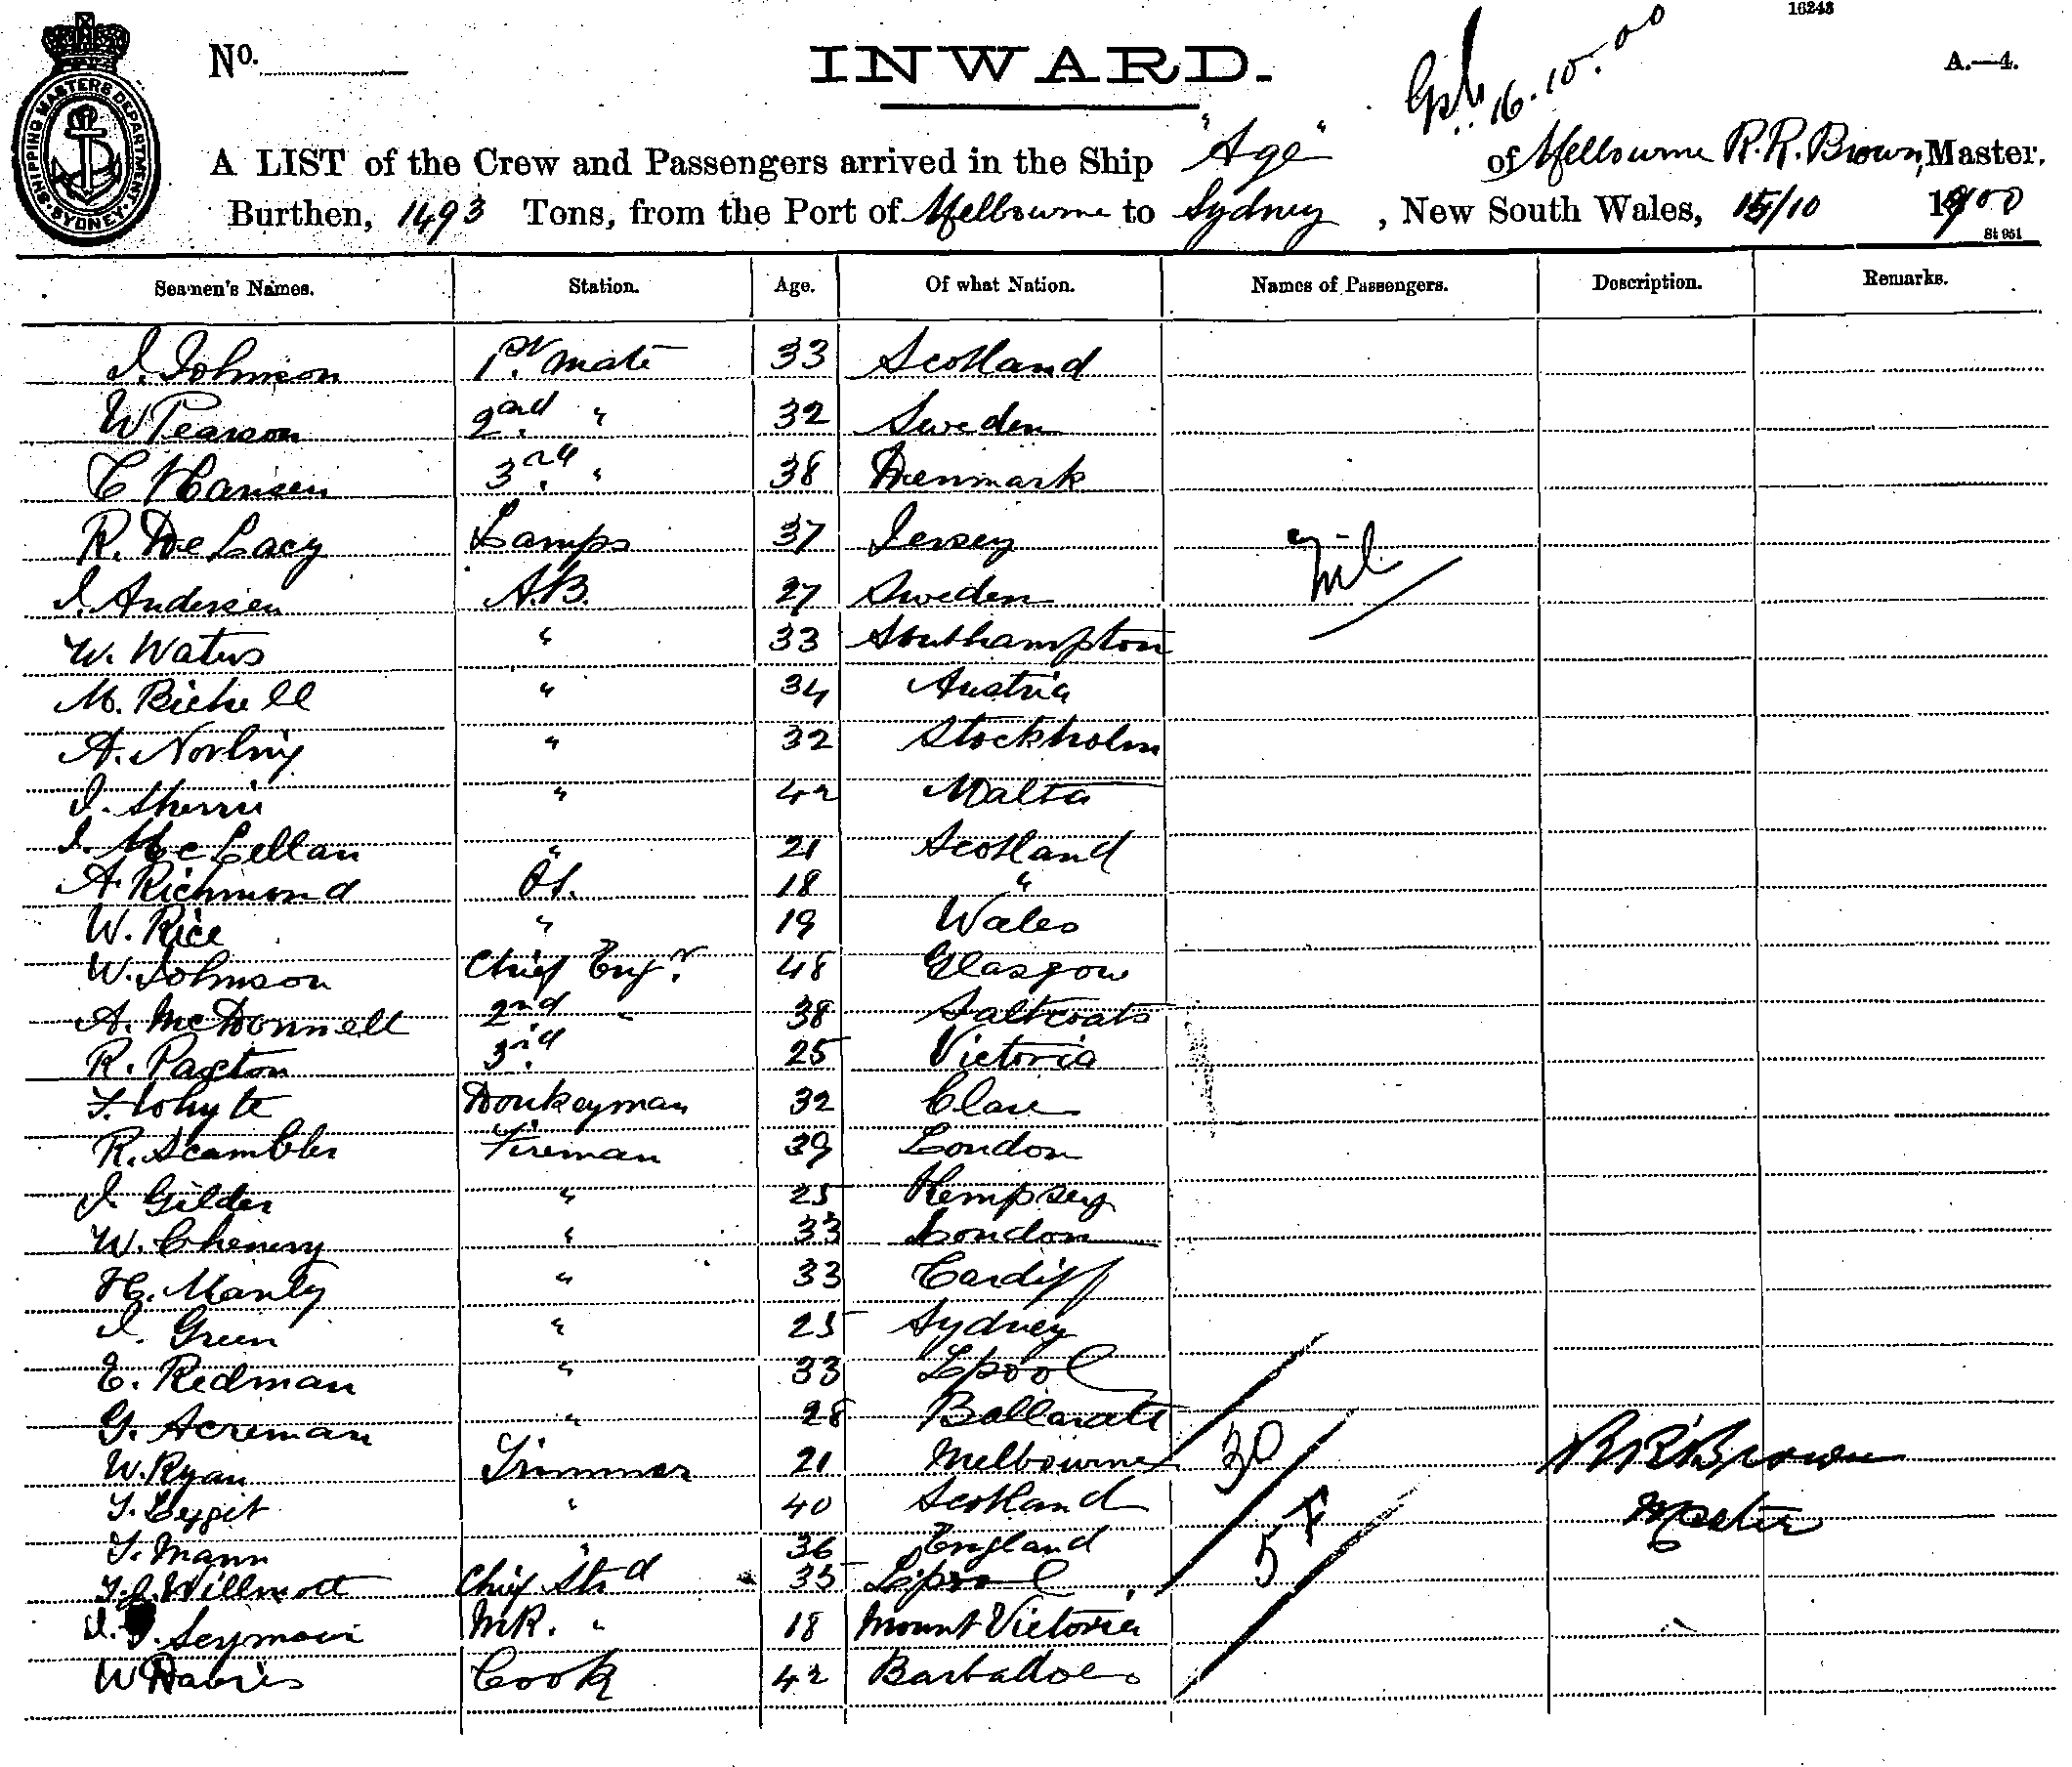 16243
No.
INWARD.
16.10.00
A.—4.
SHIPPING MASTERS DEPARTMENT SYDNEY
A LIST of the Crew and Passengers arrived in the Ship "Age" of Melbourne R.R. Brown, Master.
Burthen, 1493 Tons, from the Port of Melbourne to Sydney, New South Wales, 15/10 1900
St 951
Seamen's Names. Station. Age. Of what Nation. Names of Passengers. Description. Remarks.
J. Johnson 1st. mate 33 Scotland
W Pearson 2nd. " 32 Sweden
C Hansen 3rd. " 38 Denmark
R. De Lacy Lamps 37 Jersey
nil
J. Andersen A.B. 27 Sweden
W. Waters " 33 Southampton
M. Bichell " 34 Austria
A. Norling " 32 Stockholm
J. Sherrie " 42 Malta
J. McLellan " 21 Scotland
A. Richmond OS. 18 "
W. Rice " 19 Wales
W. Johnson Chief Engr. 48 Glasgow
A. McDonnell 2nd " 38 Saltcoats
R. Paxton 3rd. 25 Victoria
T. Whyte Donkeyman 32 Clare
R. Scambler Fireman 39 London
J. Gilder " 25 Kempsey
W. Chenery " 33 London
H. Manly " 33 Cardiff
J. Green " 25 Sydney
E. Redman " 33 Lpool
G. Acreman " 28 Ballarat
W. Ryan Trimmer 21 Melbourne
30
R R Brown
T. Leggit " 40 Scotland
Master
T. Mann " 36 England
57
T.J. Willmott Chief Std 35 Lpool
J. Seymour MR. " 18 Mount Victoria
W Davies Cook 42 Barbadoes